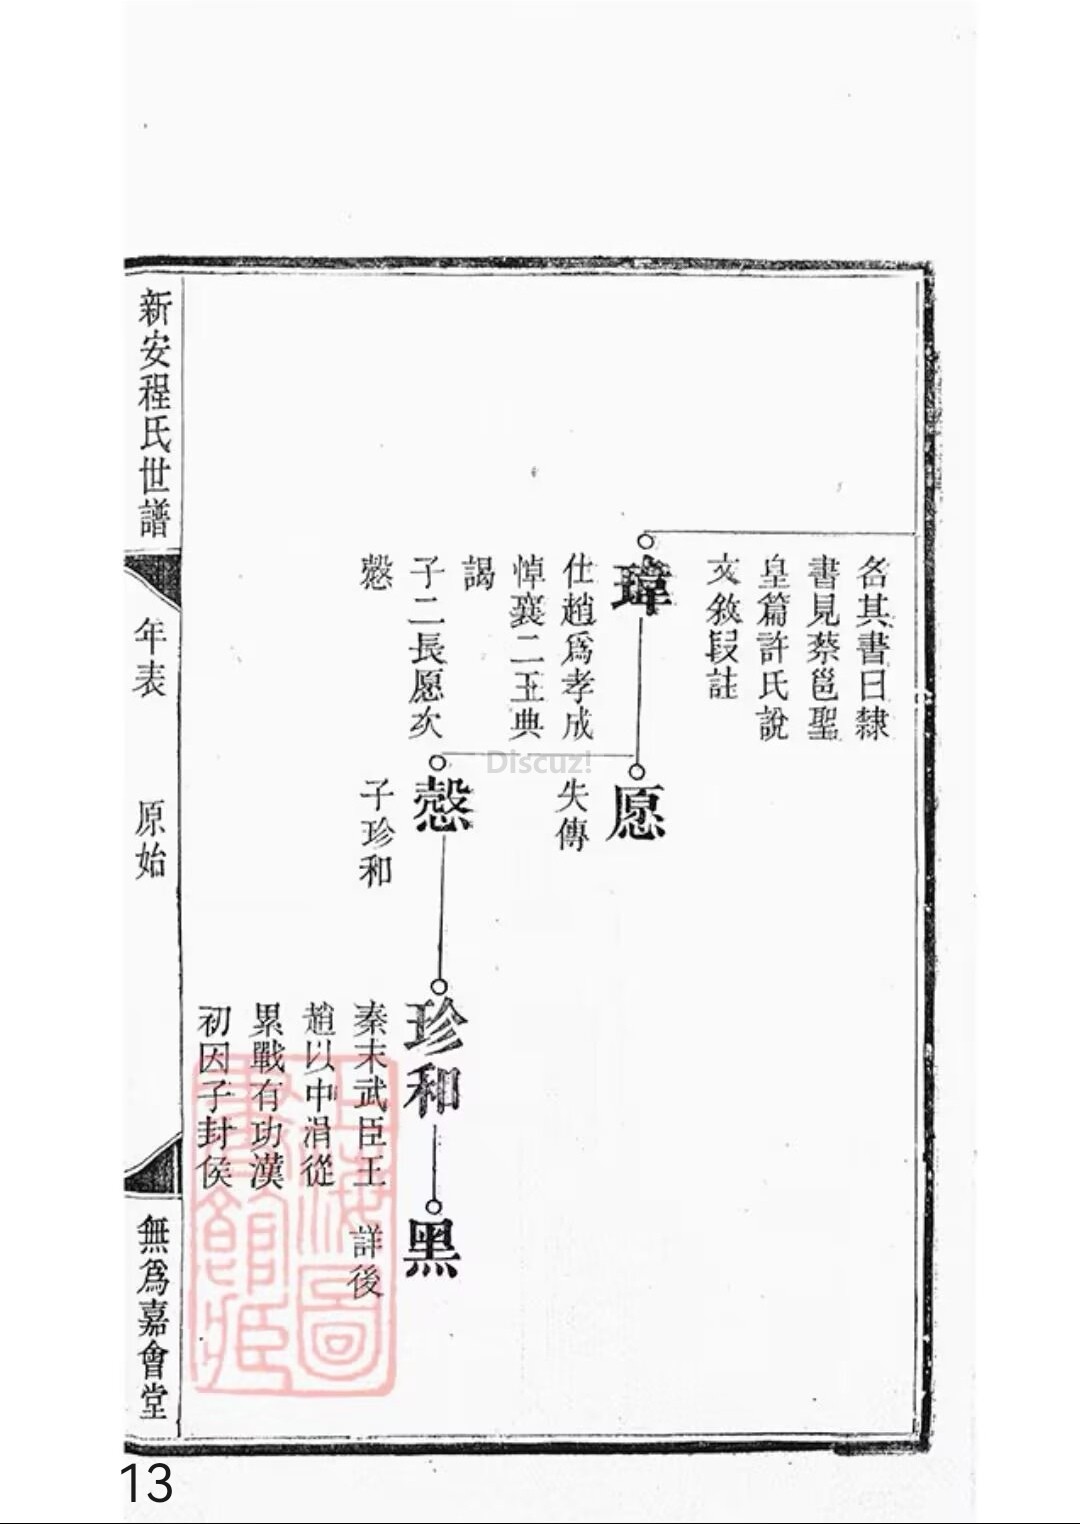 名其書曰隸
書見蔡邕聖
皇篇許氏說
文敘段註
瑋
仕趙爲孝成
悼襄二王典
謁
子二長愿次
慤
愿
失傳
慤
子珍和
珍和
秦末武臣王
趙以中涓從
累戰有功漢
初因子封侯
黑
詳後
新安程氏世譜
年表
原始
無爲嘉會堂
上海圖
書館藏
Discuz!
13